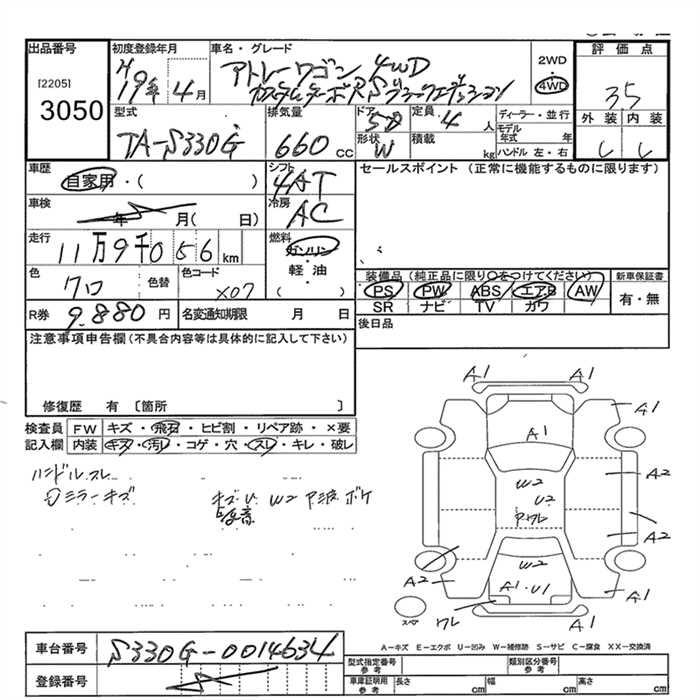 出品番号 初度登録年月 車名・グレード 2WD 評価点
[2205] H19年 4月 アトレーワゴン 4WD 4WD
3050 カスタムターボRS 35
型式 排気量 ドア 定員 ディーラー・並行 外装 内装
TA-S330G 660cc 5D 4人 モデル年式 年
形状 W 積載 kg ハンドル 左・右
車歴 シフト セールスポイント (正常に機能するものに限ります)
自家用・( ) 4AT
車検 冷房
年 月( 日) AC
走行 燃料
11万9千056km ガソリン
色 色替 色コード 軽油 装備品 (純正品に限り○をつけてください) 新車保証書
クロ X07 ( ) PS PW ABS エアB AW 有・無
SR ナビ TV カワ
R券 9.880円 名変通知期限 月 日 後日品
注意事項申告欄(不具合内容等は具体的に記入して下さい)
修復歴 有 〔箇所 〕
検査員 FW キズ・飛石・ヒビ割・リペア跡・×要
記入欄 内装 キズ・汚レ・コゲ・穴・スレ・キレ・破レ
ハンドルスレ
ミラーキズ キズ U W2 P波 ボケ
A1 A1
A1 A1
A1
W2 A2
U2
Pワレ
A2
W2
A2 A1・U1 A1
ワレ
スペア
A-キズ E-エクボ U-凹み W-補修跡 S-サビ C-腐食 XX-交換済
車台番号 S330G-0014634
登録番号
型式指定番号 参考 類別区分番号 参考
車庫証明用 参考 長さ cm 幅 cm 高さ cm